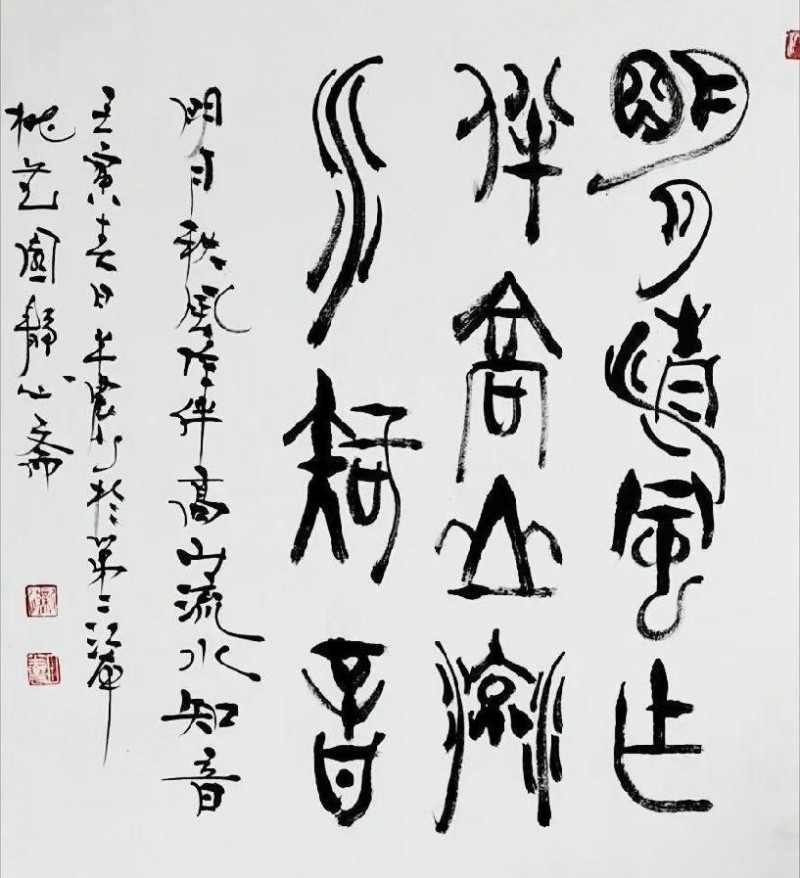 明月清風作
伴高山流
水知音
明月風作伴高山流水知音
壬寅春日於第二
桃花園静心斋